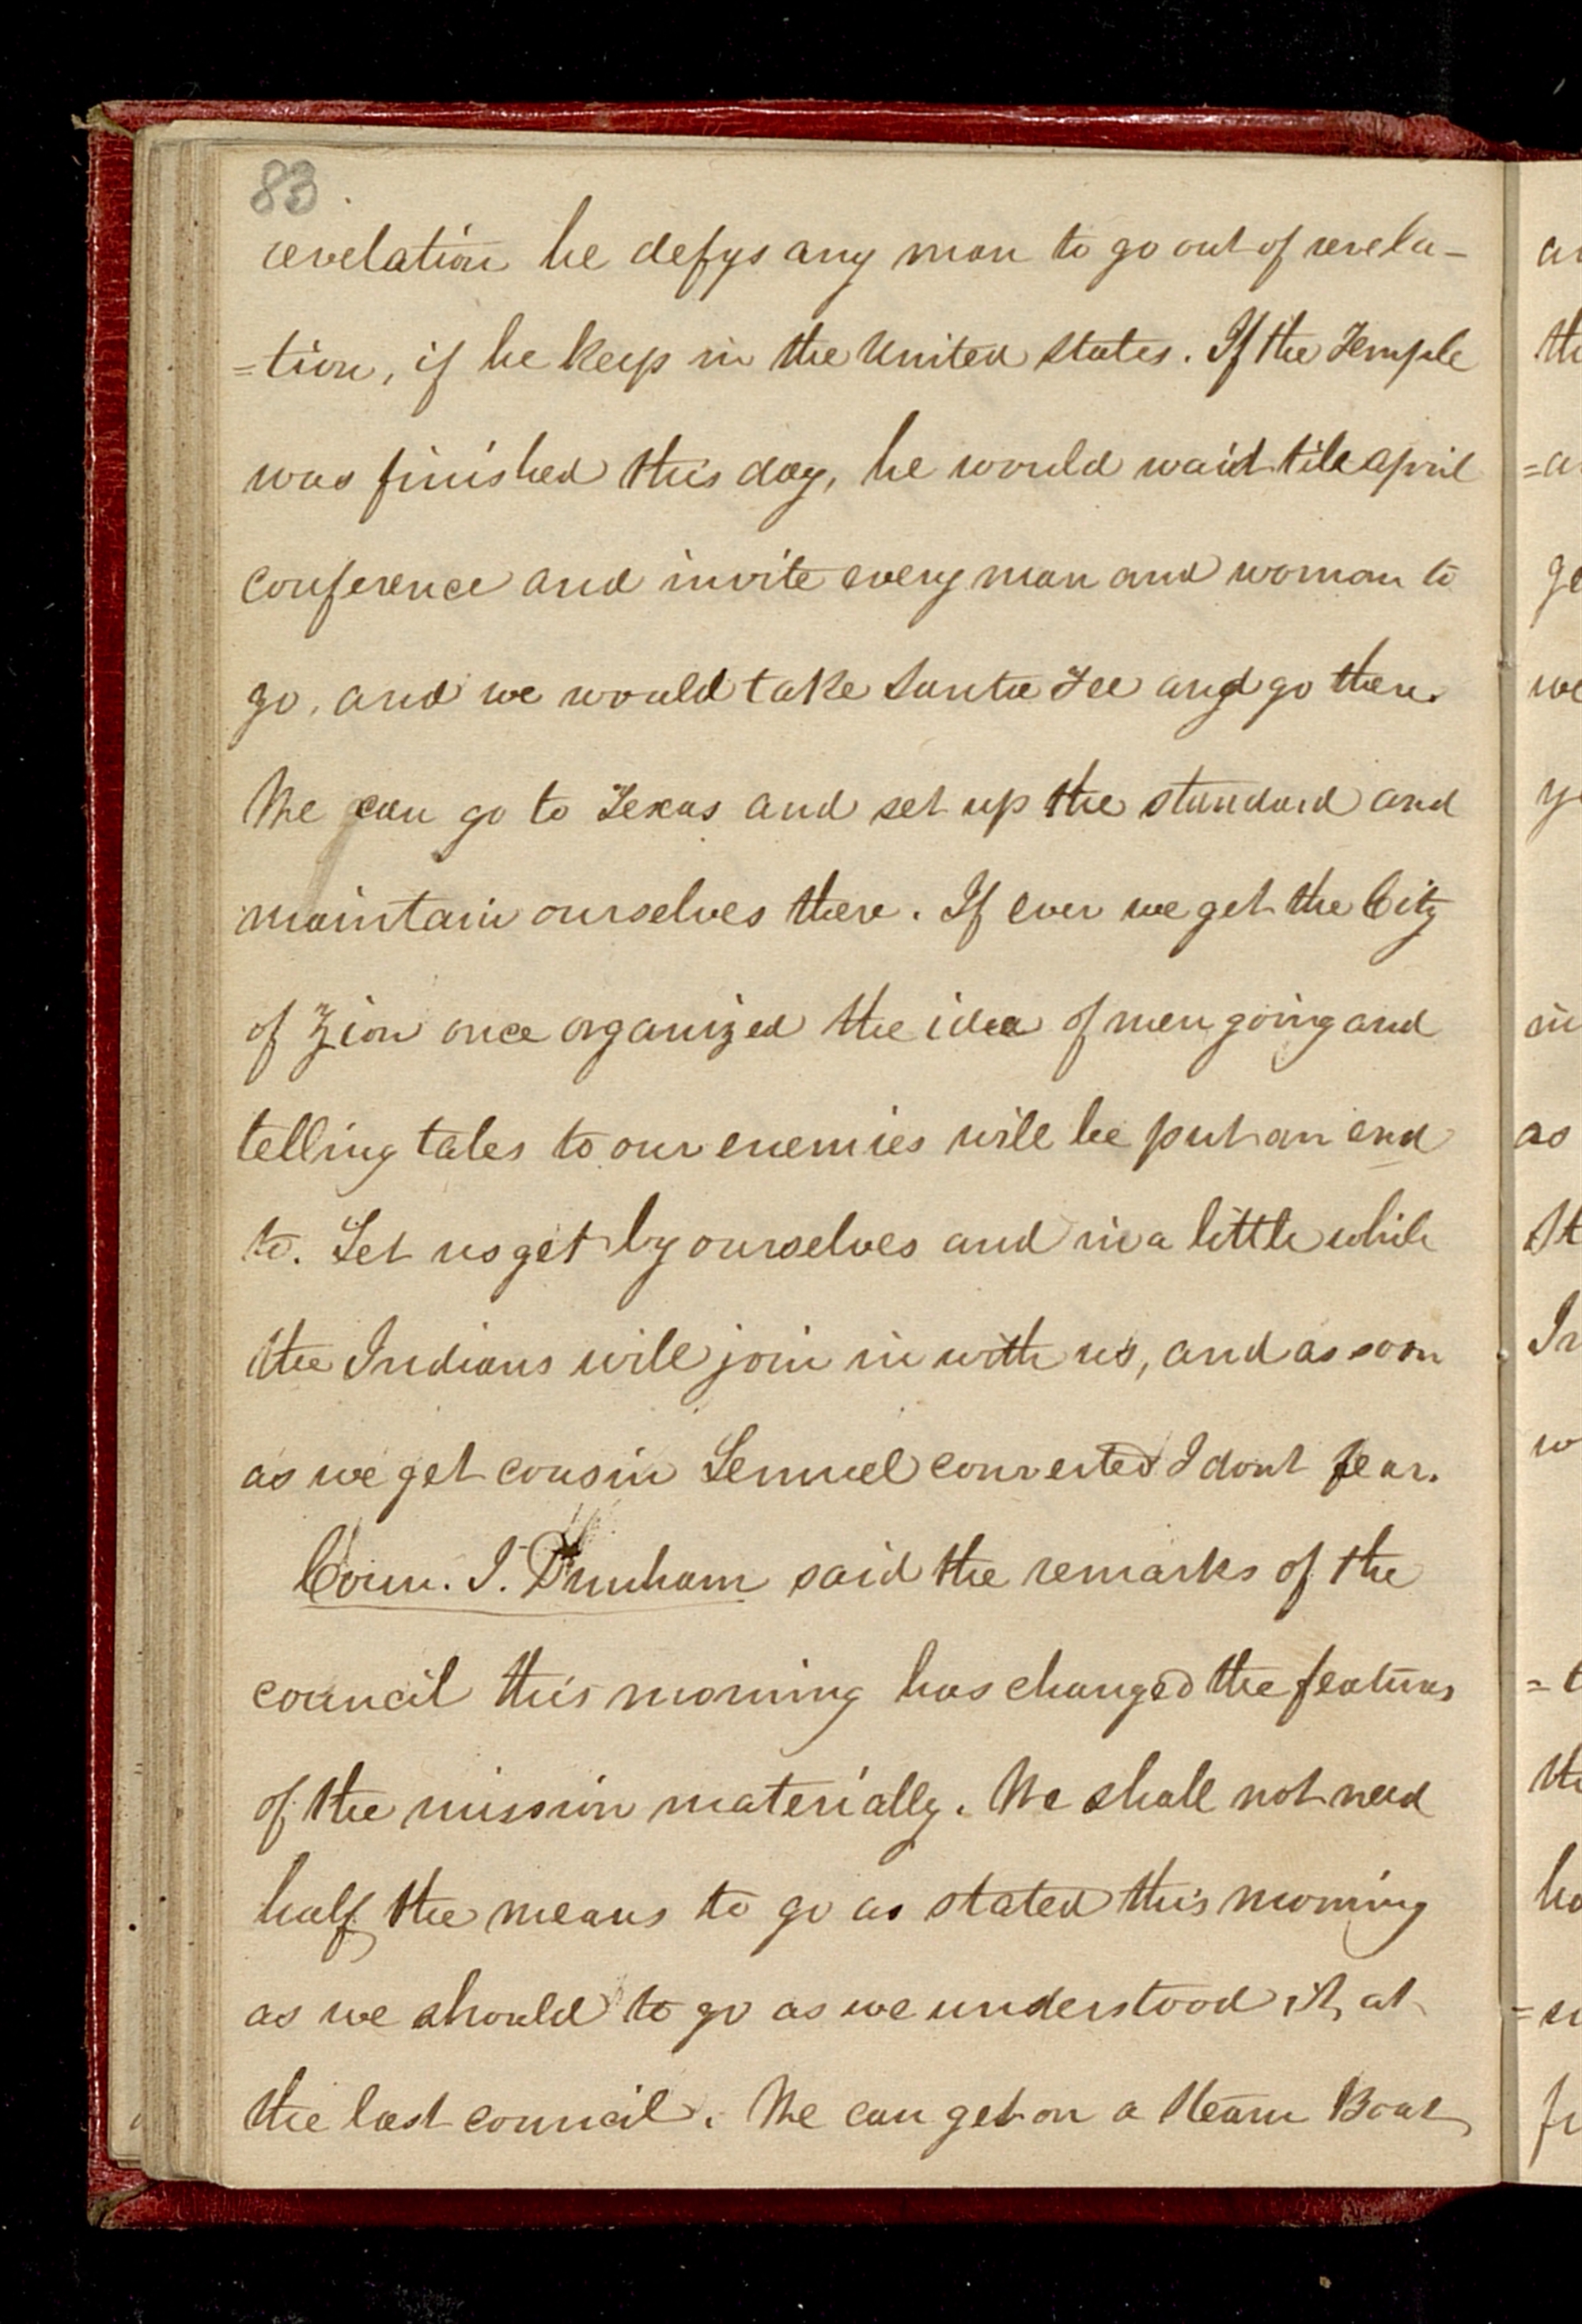 83
revelation he defys any man to go out of revela-
=tion, if he keep in the United States. If the Temple
was finished this day, he would wait till april
conference and invite every man and woman to
go, and we would take Santa Fee and go there.
We can go to Texas and set up the standard and
maintain ourselves there. If ever we get the City
of Zion once organized the idea of men going and
telling tales to our enemies will be put an end
to. Let us get by ourselves and in a little while
the Indians will join in with us, and as soon
as we get cousin Lemuel converted I dont fear.
Coun. J. Dunham said the remarks of the
council this morning has changed the features
of the mission materially. We shall not need
half the means to go as stated this morning
as we should to go as we understood it, at
the last council. We can get on a Steam Boat